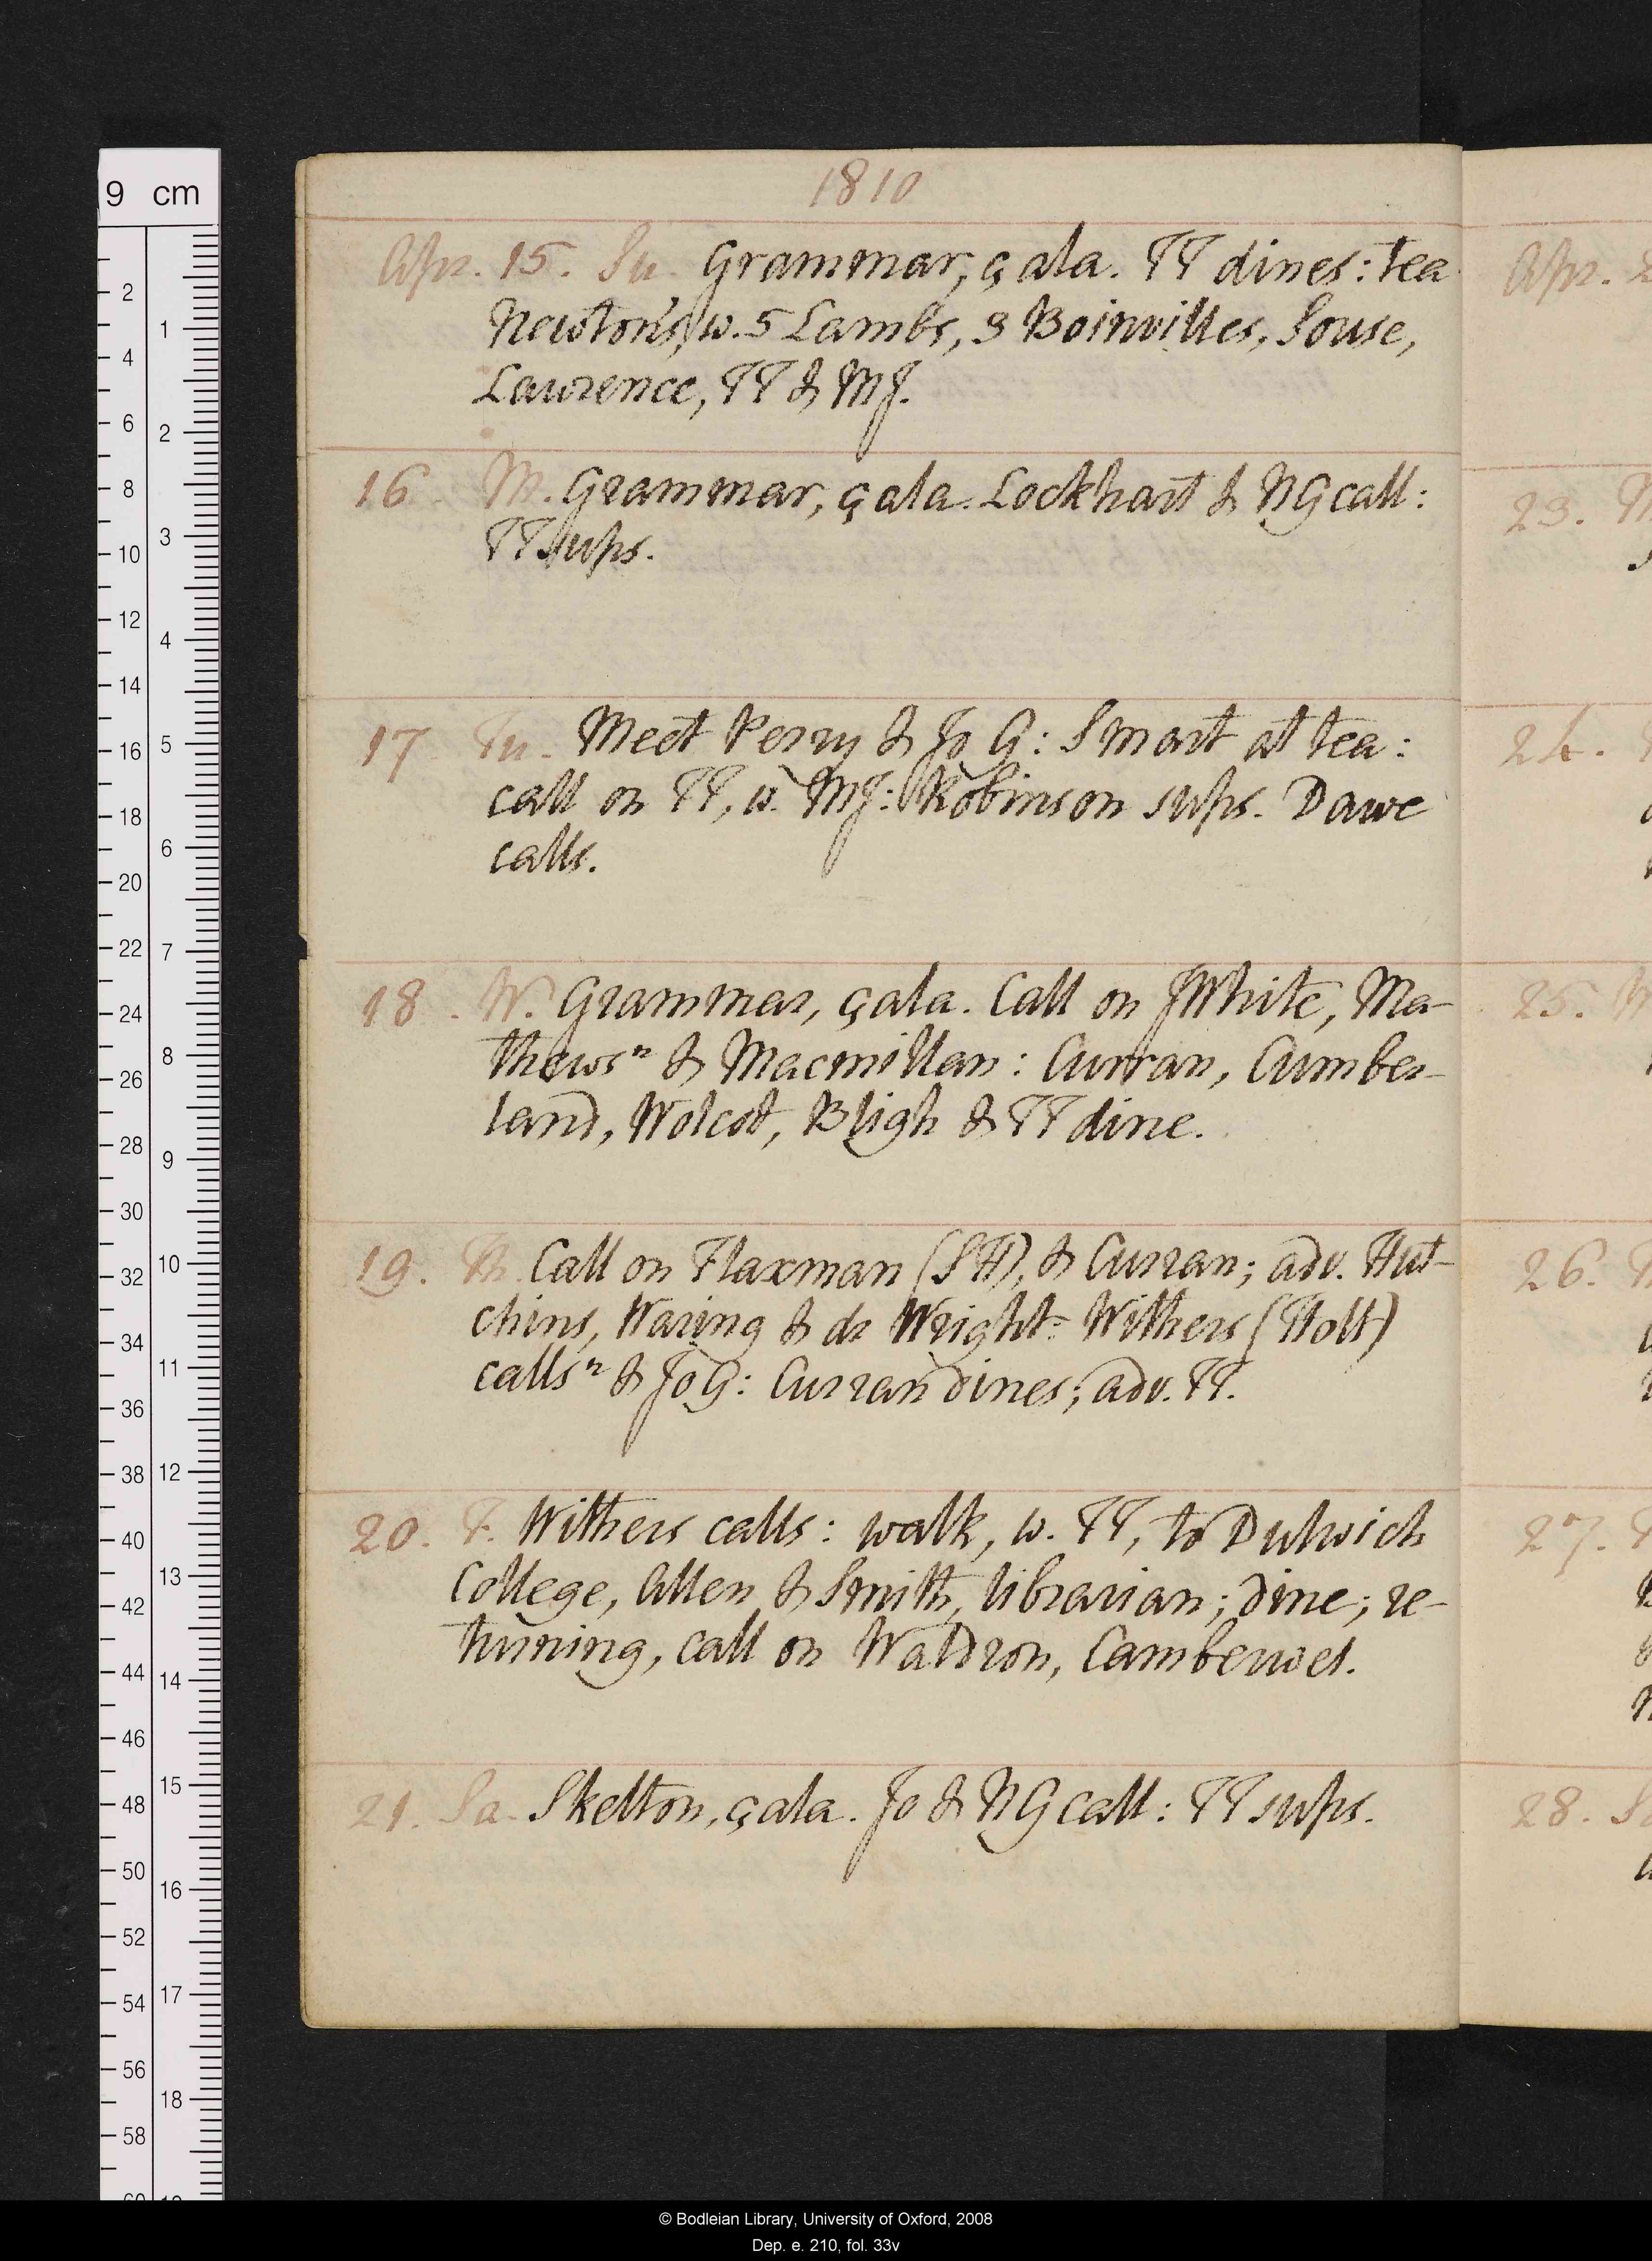 1810
Apr. 15. Su. Grammar, çala. TT dines: tea
Newton's, w. 5 Lambs, 3 Boinvilles, Souse,
Lawrence, TT & MJ.
16. M. Grammar, çala. Lockhart & NG call:
TT sups.
17. Tu. Meet Perry & Jo G: Smart at tea:
call on TT, w. MJ: Robinson sups. Dawe
calls.
18. W. Grammar, çala. Call on JWhite, Ma-
thewsⁿ & Macmillan: Curran, Cumber-
land, Wolcot, Bligh & TT dine.
19. Th. Call on Flaxman (SH), & Curran; adv. Hut-
chins, Waring & dr Wright: Withers (Holt)
callsⁿ & Jo G: Curran dines; adv. TT.
20. F. Withers calls: walk, w. TT, to Dulwich
College, Allen & Smith, librarian; dine; re-
turning, call on Waldron, Camberwel.
21. Sa. Skelton, çala. Jo & NG call: TT sups.
Apr. 2
23. M
24.
25. W
26. T
27.
28. Sa
9 cm
2
4
6
8
10
12
14
16
18
20
22
24
26
28
30
32
34
36
38
40
42
44
46
48
50
52
54
56
58
1
2
3
4
5
6
7
8
9
10
11
12
13
14
15
16
17
18
© Bodleian Library, University of Oxford, 2008
Dep. e. 210, fol. 33v